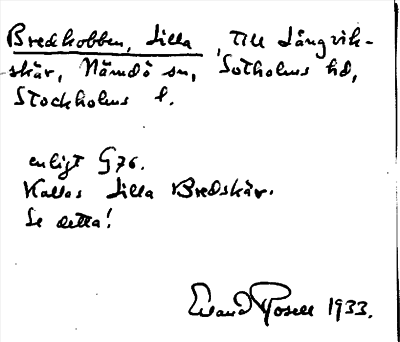 Bredkobben, Lilla, till Långvik-
skär, Nämdö sn, Sotholms hd,
Stockholms l.
enligt G76.
Kallas Lilla Bredskär.
Se detta!
Erland Rosell 1933.